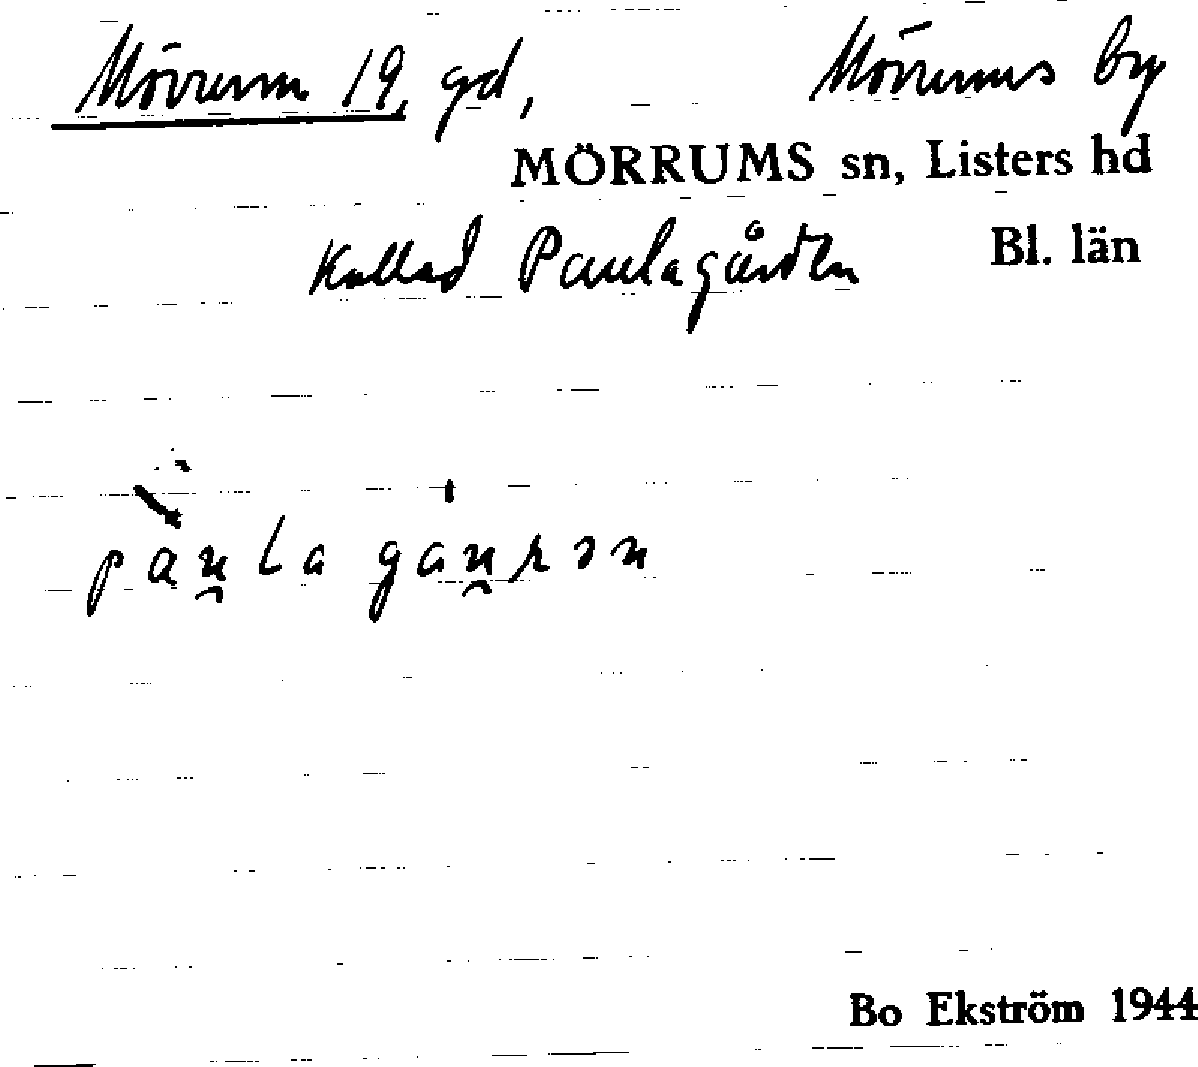 Mörrum 19, gd, Mörrums by
MÖRRUMS sn, Listers hd
Kallad Paulagården Bl. län
pàu̯la gáu̯rən
Bo Ekström 1944